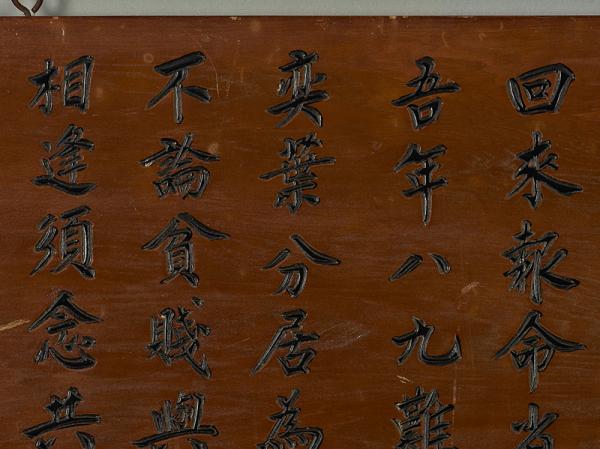 回來報命當
吾年八九難
奕葉分居為
不論貧賤與
相逢須念共